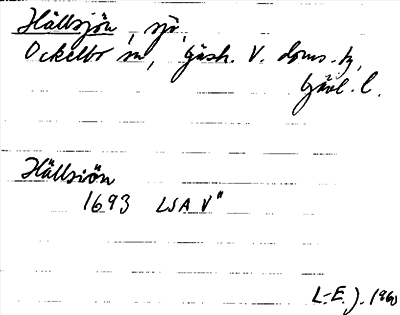 Hällsjön, sjö,
Ockelbo sn, Gästr. V. doms.h,
Gävl. l.
Hällsiön
1693 LSA V"
L.-E. J. 1960